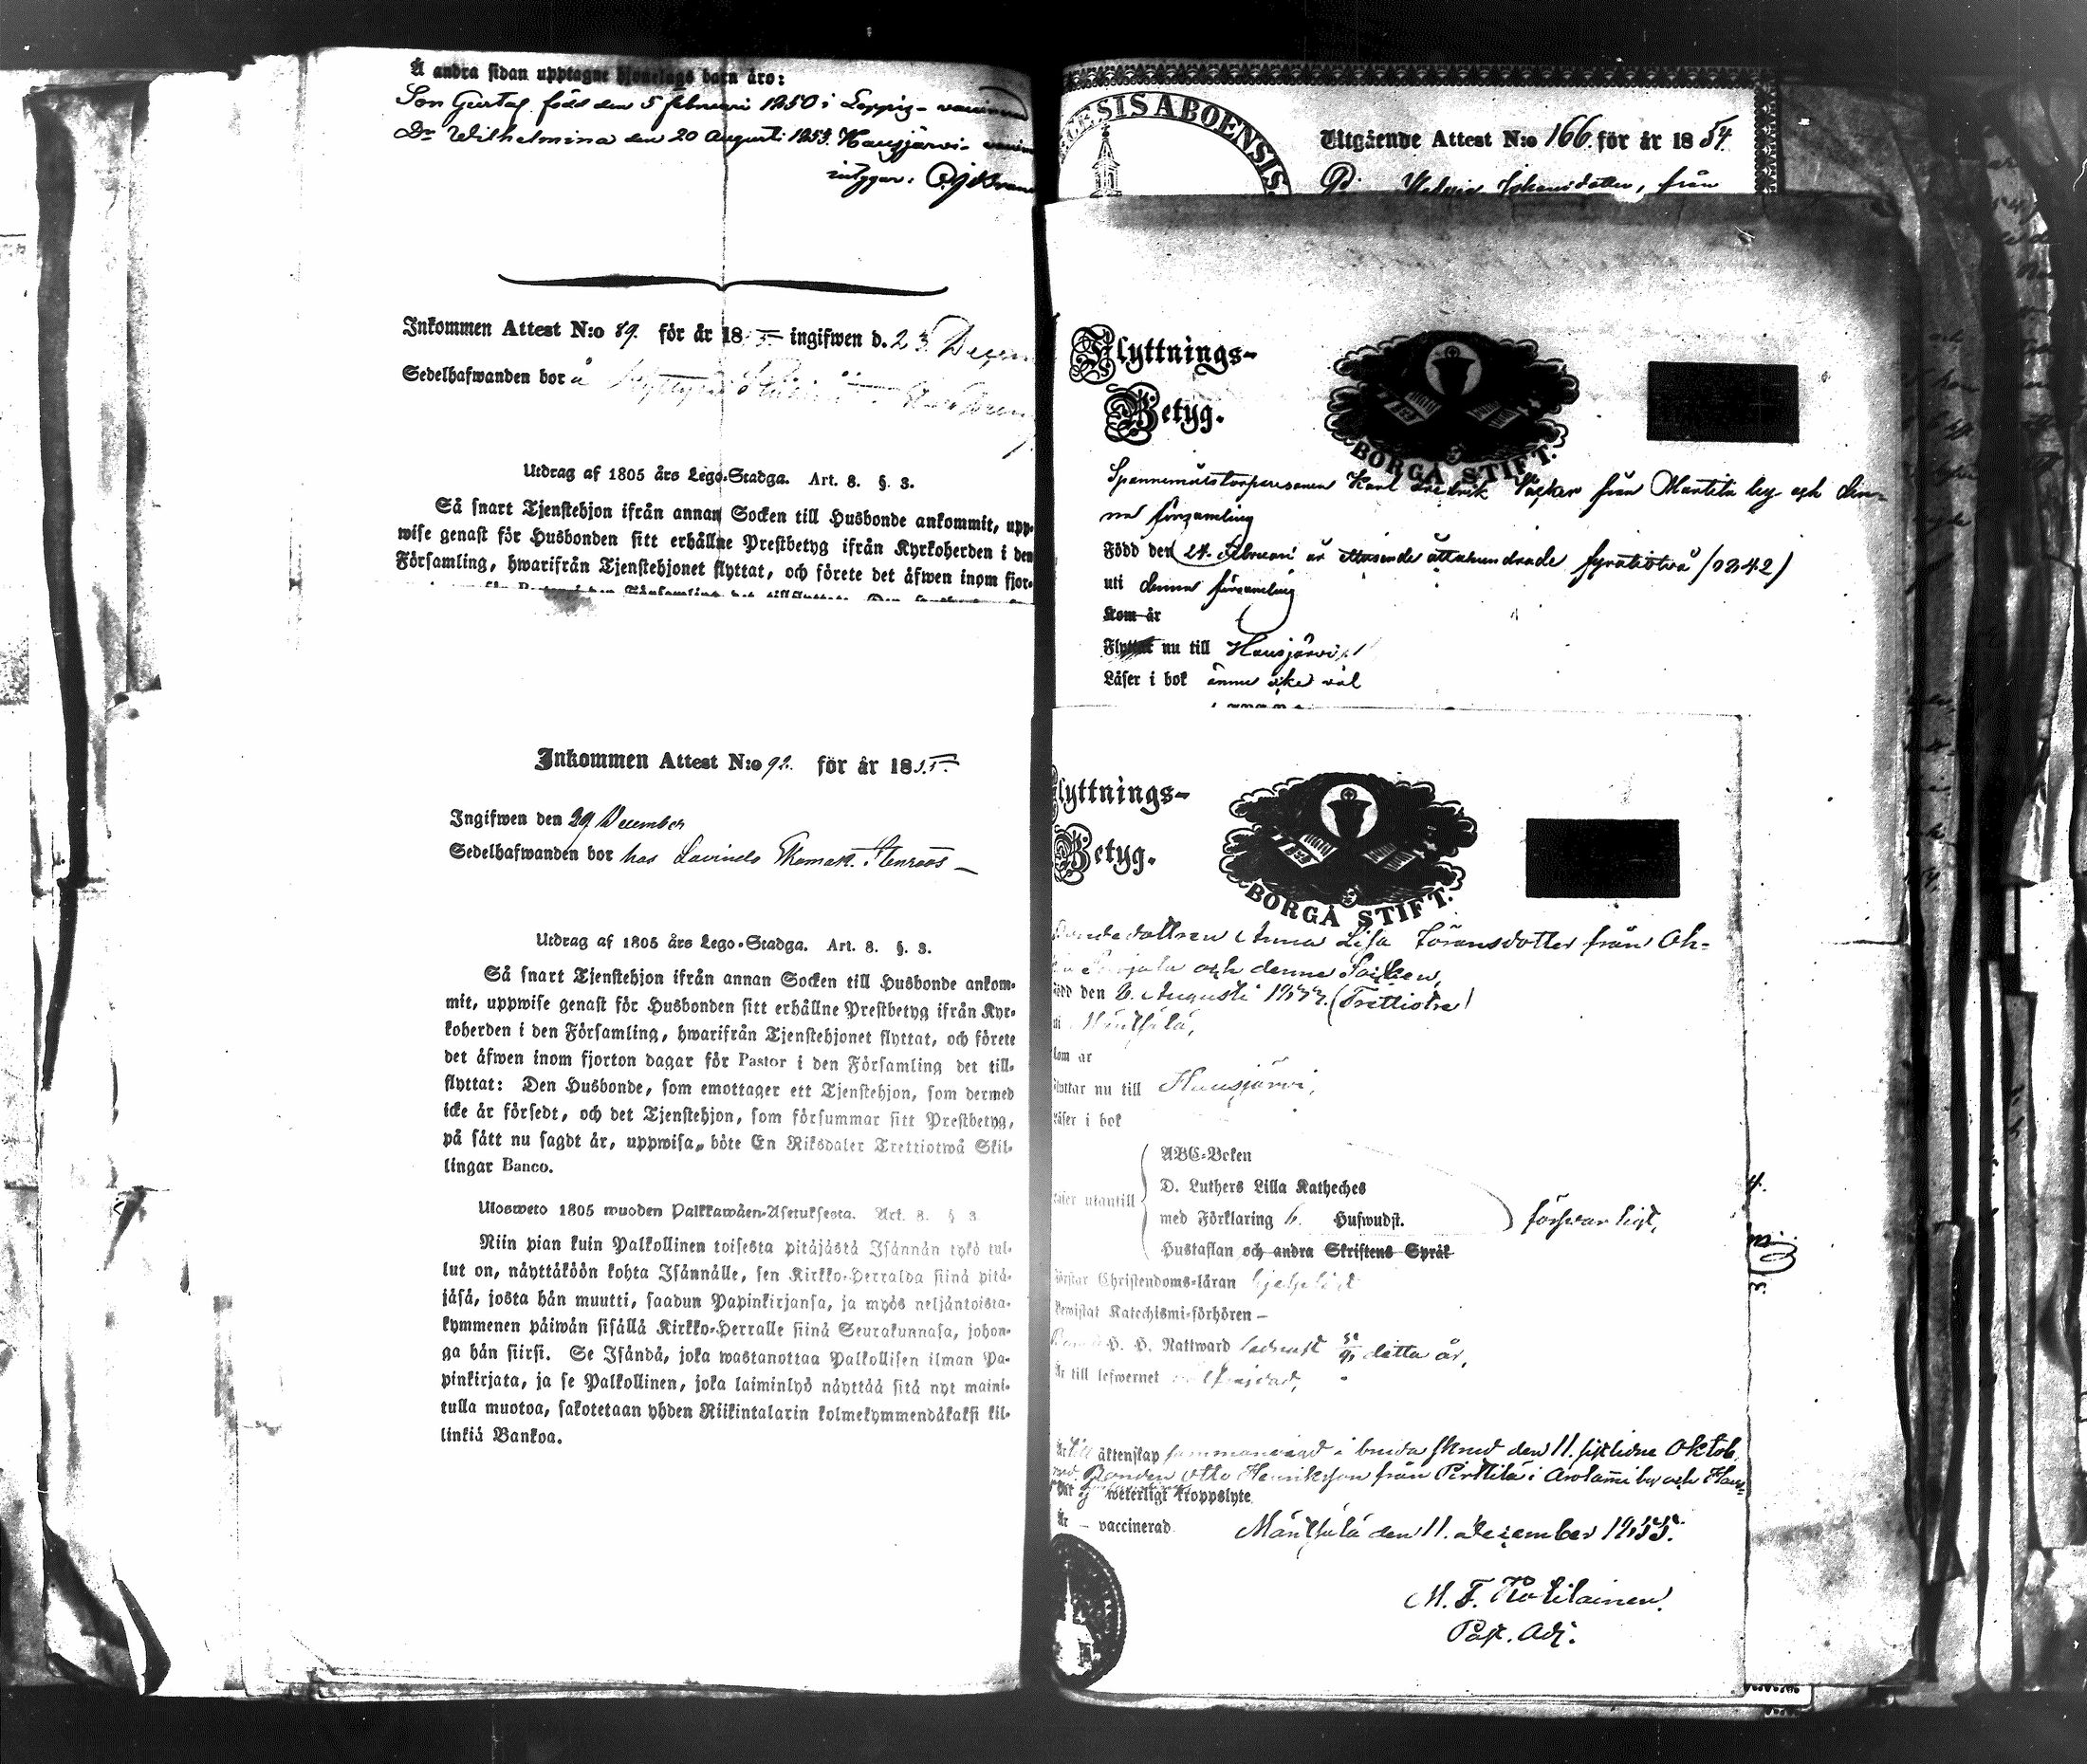 Å andra sidan upptagne hjonelags barn äro:
Son Gustaf född den 5 februari 1850 i Loppis - vaccinerad
Dr Wilhelmina den 20 Augusti 1853 Hausjärvi -
intygar:
Inkommen Attest N:o 89. för år 18 ingifwen d. 23 Decem
Sedelhafwanden bor å
Utdrag af 1805 års Lego-Stadga. Art. 8. §. 3.
Så snart Tjenstehjon ifrån annan Socken till Husbonde ankommit, upp-
wise genast för Husbonden sitt erhållne Prestbetyg ifrån Kyrkoherden i den
Församling, hwarifrån Tjenstehjonet flyttat, och förete det åfwen inom fjor-
Inkommen Attest N:o 92. för år 1855.
Ingifwen den 29 December
Sedelhafwanden bor hos Lavinds Stenroos -
Utdrag af 1805 års Lego-Stadga. Art. 8. §. 3.
Så snart Tjenstehjon ifrån annan Socken till Husbonde ankom-
mit, uppwise genast för Husbonden sitt erhållne Prestbetyg ifrån Kyr-
koherden i den Församling, hwarifrån Tjenstehjonet flyttat, och förete
det åfwen inom fjorton dagar för Pastor i den Församling det till-
flyttat: Den Husbonde, som emottager ett Tjenstehjon, som dermed
icke är försedt, och det Tjenstehjon, som försummar sitt Prestbetyg,
på sätt nu sagdt är, uppwisa, böte En Riksdaler Trettiotwå Skil-
lingar Banco.
Ulosweto 1805 wuoden Palkkawäen-Asetuksesta. Art. 8. § 3.
Niin pian kuin Palkollinen toisesta pitäjästä Isännän tykö tul-
lut on, näyttäköön kohta Isännälle, sen Kirkko-Herralda siinä pitä-
jäsä, josta hän muutti, saadun Papinkirjansa, ja myös neljäntoista-
kymmenen päiwän sisällä Kirkko-Herralle siinä Seurakunnasa, johon-
ga hän siirsi. Se Isändä, joka wastanottaa Palkollisen ilman Pa-
pinkirjata, ja se Palkollinen, joka laiminlyö näyttää sitä nyt maini-
tulla muotoa, sakotetaan yhden Riikintalarin kolmekymmendäkaksi kil-
linkiä Bankoa.
ESIS ABOENSIS
Utgående Attest N:o 166. för år 1854.
Johansdotter, från
Flyttnings-
Betyg.
BORGÅ STIFT.
Spannemålstorparesonen Karl Fredrik från Mantila by och den-
na församling
Född den 24. Februari år ettusende åttahundrade fyratiotvå (1842)
uti denna församling
Kom år
Flyttar nu till Hausjärvi
Läser i bok ännu icke väl
Flyttnings-
Betyg.
BORGÅ STIFT.
Bondedottren Anna Lisa Göransdotter från Oh-
och denne Socken,
Född den 6. Augusti 1833. (Trettiotre)
uti Mäntsälä,
Kom år
Flyttar nu till Hausjärvi,
Läser i bok
Läser utantill
ABC-Boken
D. Luthers Lilla Katheches
med Förklaring 6. Hufwudst.
Hustaflan och andra Skriftens Språk
försvarligt,
Förstår Christendoms-läran hjelpligt
Bewistat Katechismi-förhören -
H. H. Nattward senast detta år,
Är till lefwernet
Är till äktenskap sammanvigd i bruda skrud den 11. sistlidne Oktob.
med Bonden Otto Henriksson från Pirttilä i Arolammi by och Haus-
weterligt kroppslyte
Är - vaccinerad. Mäntsälä den 11. December 1855.
M. F. Kotilainen.
Past. Adj.